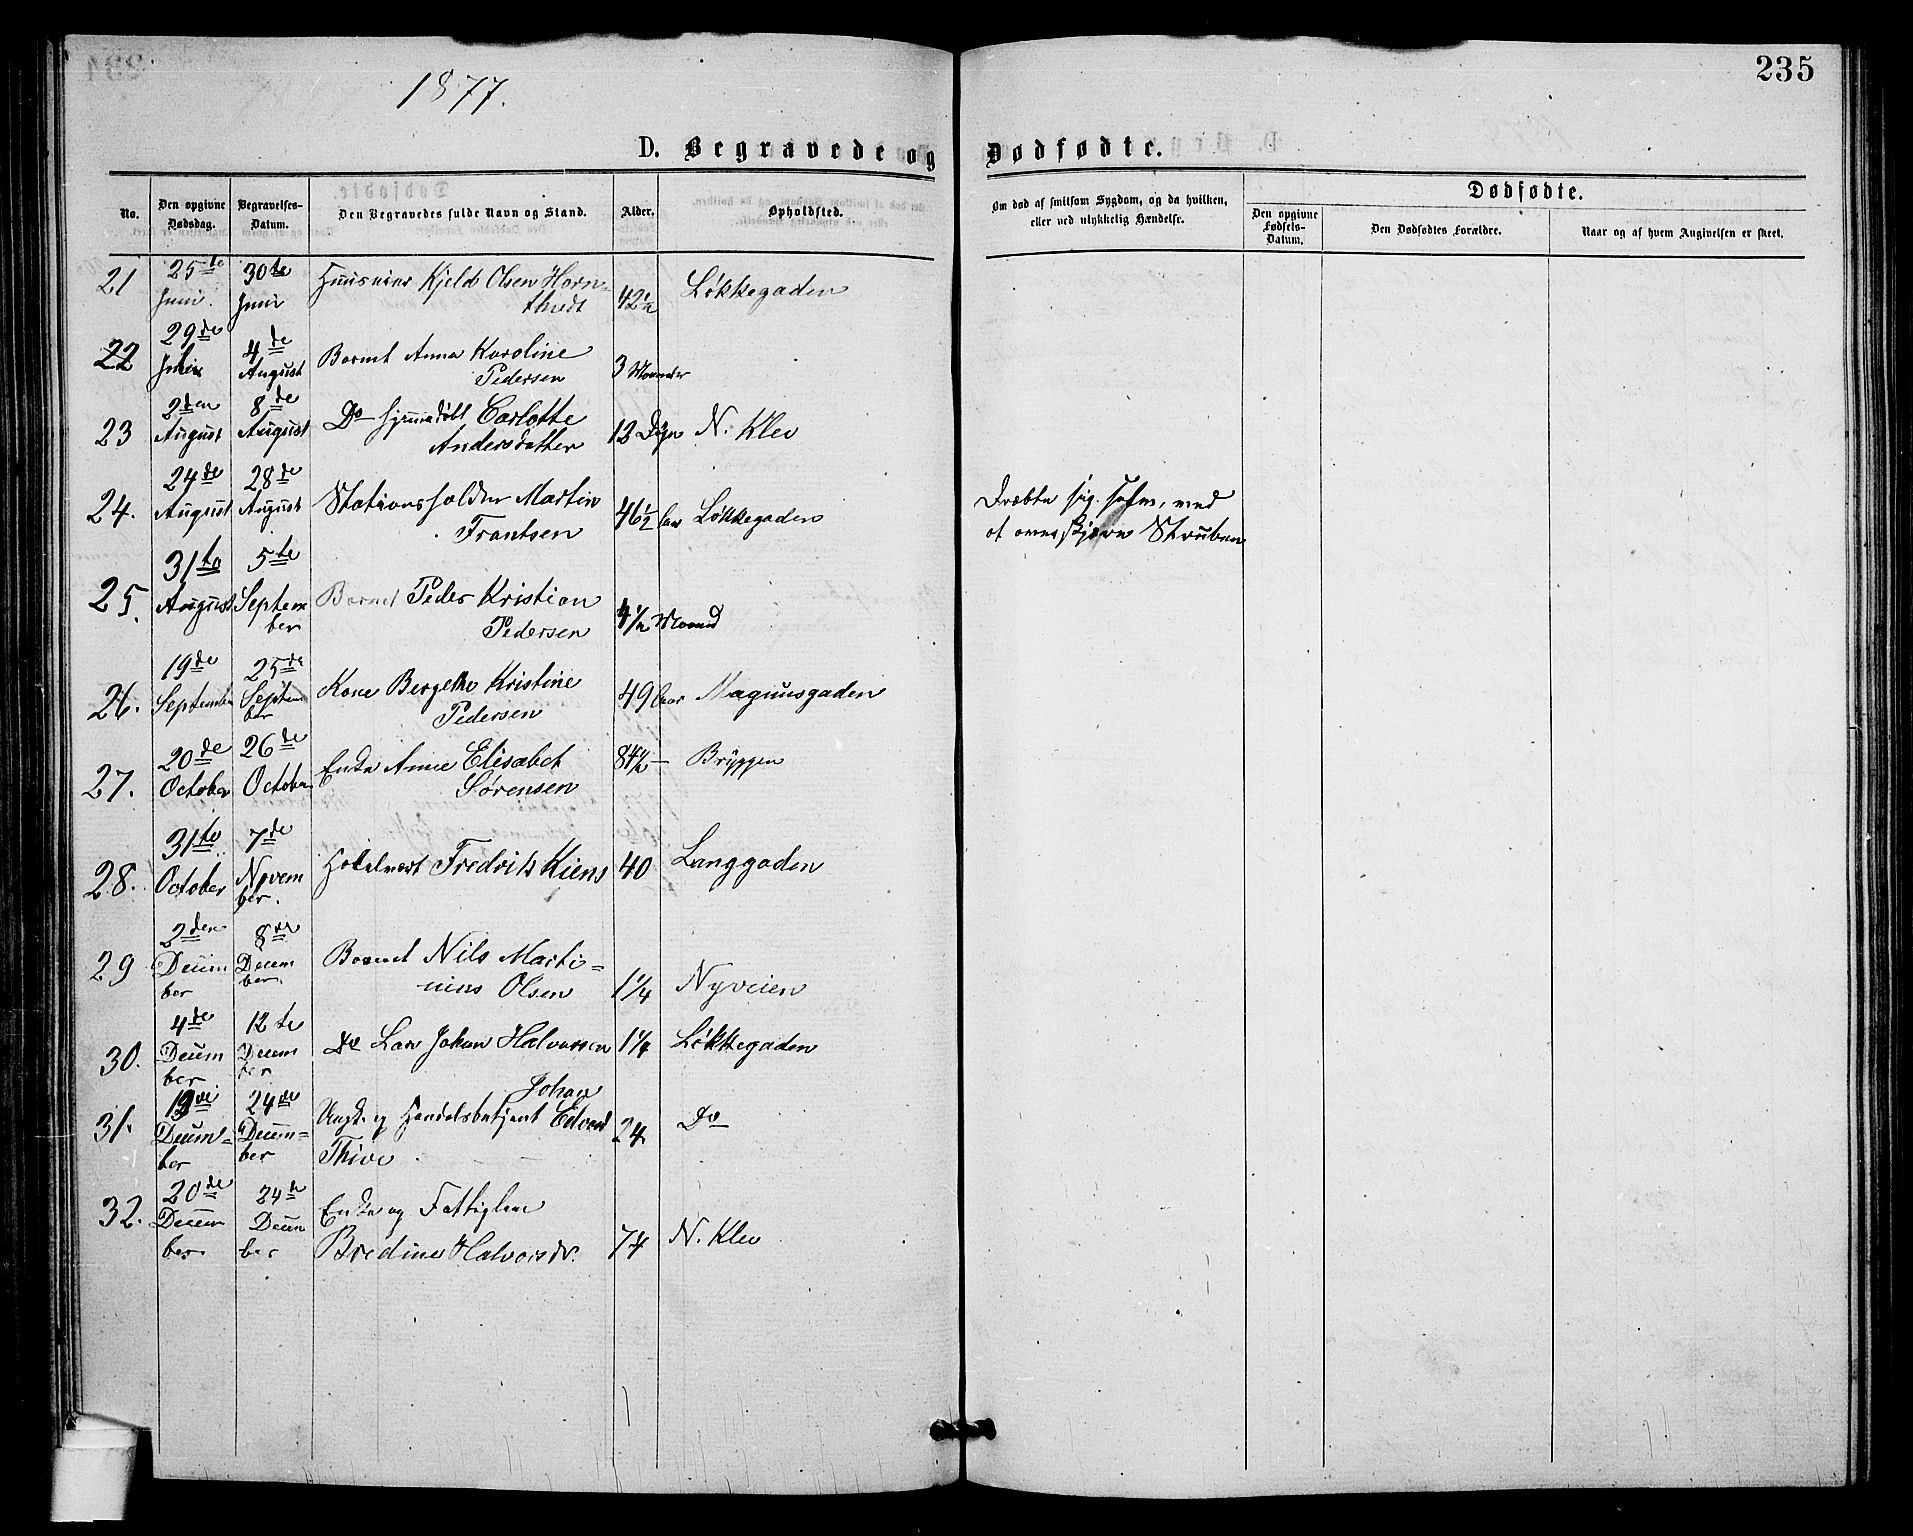 1877.
235
D. Begravede og Dødfødte.
No.
Den opgivne Dødsdag.
Begravelses-Datum.
Den Begravedes fulde Navn og Stand.
Alder.
Opholdsted.
Om død af smitsom Sygdom, og da hvilken,
eller ved ulykkelig Hændelse.
Dødfødte.
Den opgivne Fødsels-Datum.
Den Dødfødtes Forældre.
Naar og af hvem Angivelsen er skeet.
21 25te Juni. 30te Juni Kjeld Olsen Horn= 42½ Løkkegaden
22 29de 4de August Barnet Anna Karoline
Pedersen 3 Maaneder
23 2den August 8de August Do Carlotte
Andersdatter 12 Døgn N. Klev
24. 24de August 28de August Stationsholder Martin
Frantsen 46½ Aar Løkkegaden
Dræbte sig selv, ved
at overskjære Struben
25. 31te August 5te Septem
ber Barnet Peder Kristian
Pedersen Maaned
26. 19de September 25de Septem
ber Kone Bergethe Kristine
Pedersen 49 Aar Magnusgaden
27. 20de October 26de October Enke Anne Elisabet
Sørensen 84½ — Bryggen
28. 31te October 7de Novem
ber. Hotelvært Fredrik Kiens 40 Langgaden
29 2den Decem
ber 8de Decem
ber. Barnet Nils Marti=
nius Olsen 1¼ Nyveien
30. 4de Decem
ber 12te Decem
ber Do Lars Johan Halvorsen 1¼ Løkkegaden
31. Decem=
ber 24de Decem=
ber Johan
Ungk. og Handelsbetjent Edvard
Thive 24 Do
32. 20de Decem
ber 24de Decem
ber Enke og Fattiglem
Bredine Halvorsdr. 74 N. Klev